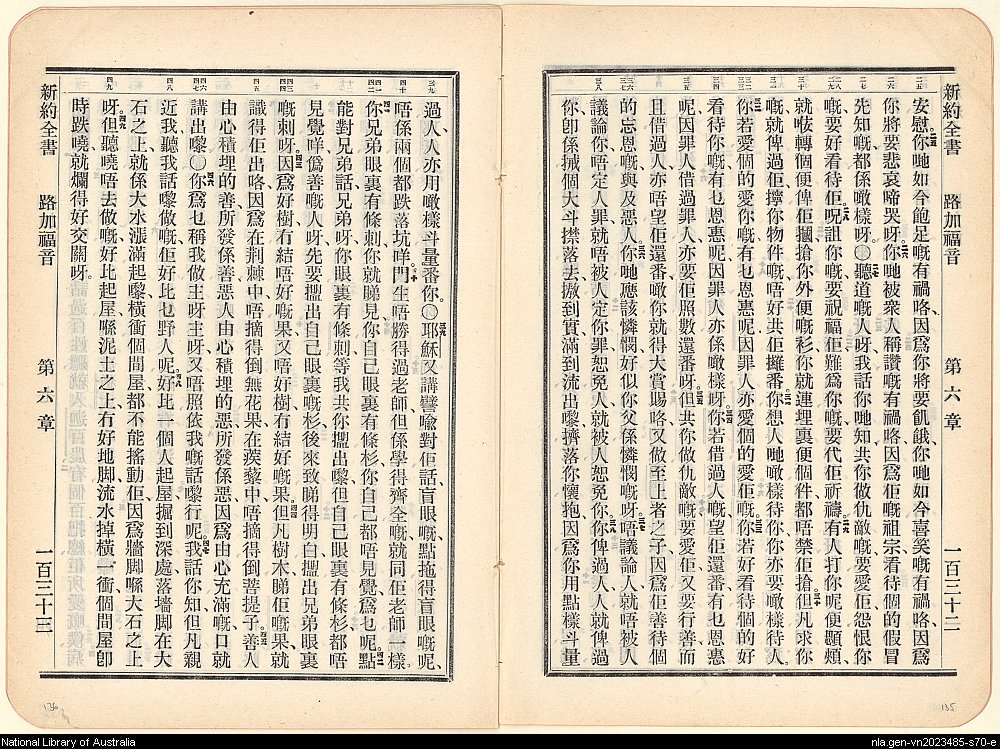 新約全書 路加福音 第六章 一百三十二
安慰你哋如今飽足嘅有禍咯因爲你將要飢餓你哋如今喜笑嘅有禍咯因爲
你將要悲哀啼哭呀你哋被衆人稱讚嘅有禍咯因爲佢嘅祖宗看待個的假冒
先知嘅都係噉樣呀〇聽道嘅人呀我話你哋知共你做仇敵嘅要愛佢怨恨你
嘅要好看待佢呪詛你嘅要祝福佢難爲你嘅要代佢祈禱有人打你呢便頤頰
就吱轉個便俾佢摑搶你外便嘅衫你就連埋裏便個件都唔禁佢搶但凡求你
嘅就俾過佢擰你物件嘅唔好共佢攞番你想人哋噉樣待你你亦要噉樣待人
你若愛個的愛你嘅有乜恩惠呢因罪人亦愛個的愛佢嘅你若好看待個的好
看待你嘅有乜恩惠呢因罪人亦係噉樣呀你若借過人嘅望佢還番有乜恩惠
呢因罪人借過罪人亦要佢照數還番呀但共你做仇敵嘅要愛佢又要行善而
且借過人亦唔望佢還番噉你就得大賞賜咯又做至上者之子因爲佢善待個
的忘恩嘅與及惡人你哋應該憐憫好似你父係憐憫嘅呀唔議論人就唔被人
議論你唔定人罪就唔被人定你罪恕免人就被人恕免你你俾過人人就俾過
你卽係搣個大斗㩒落去㨄到實滿到流出嚟擠落你懷抱因爲你用點樣斗量
過人人亦用噉樣斗量番你〇耶穌又講譬喻對佢話盲眼嘅點拖得盲眼嘅呢
唔係兩個都跌落坑咩門生唔勝得過老師但係學得齊全嘅就同佢老師一樣
你兄弟眼裏有條刺你就睇見你自己眼裏有條杉你自己都唔見覺爲乜呢點
能對兄弟話兄弟呀你眼裏有條刺等我共你搵出嚟但自己眼裏有條杉都唔
見覺咩僞善嘅人呀先要搵出自己眼裏嘅杉後來致睇得明白搵出兄弟眼裏
嘅刺呀因爲好樹冇結唔好嘅果又唔好樹冇結好嘅果但凡樹木睇佢嘅果就
識得佢出咯因爲在荆棘中唔摘得倒無花果在蒺藜中唔摘得倒菩提子善人
由心積埋的善所發係善惡人由心積埋的惡所發係惡因爲由心充滿嘅口就
講出嚟〇你爲乜稱我做主呀主呀又唔照依我嘅話嚟行呢我話你知但凡親
近我聽我話嚟做嘅佢好比乜野人呢好比一個人起屋掘到深處落墻脚在大
石之上就係大水漲滿起嚟橫衝個間屋都不能搖動佢因爲牆脚喺大石之上
呀但聽曉唔去做嘅好比起屋喺泥土之上冇好地脚流水掉橫一衝個間屋卽
時跌曉就爛得好交關呀
新約全書 路加福音 第六章 一百三十三
135
136
National Library of Australia
nla.gen-vn2023485-s70-e